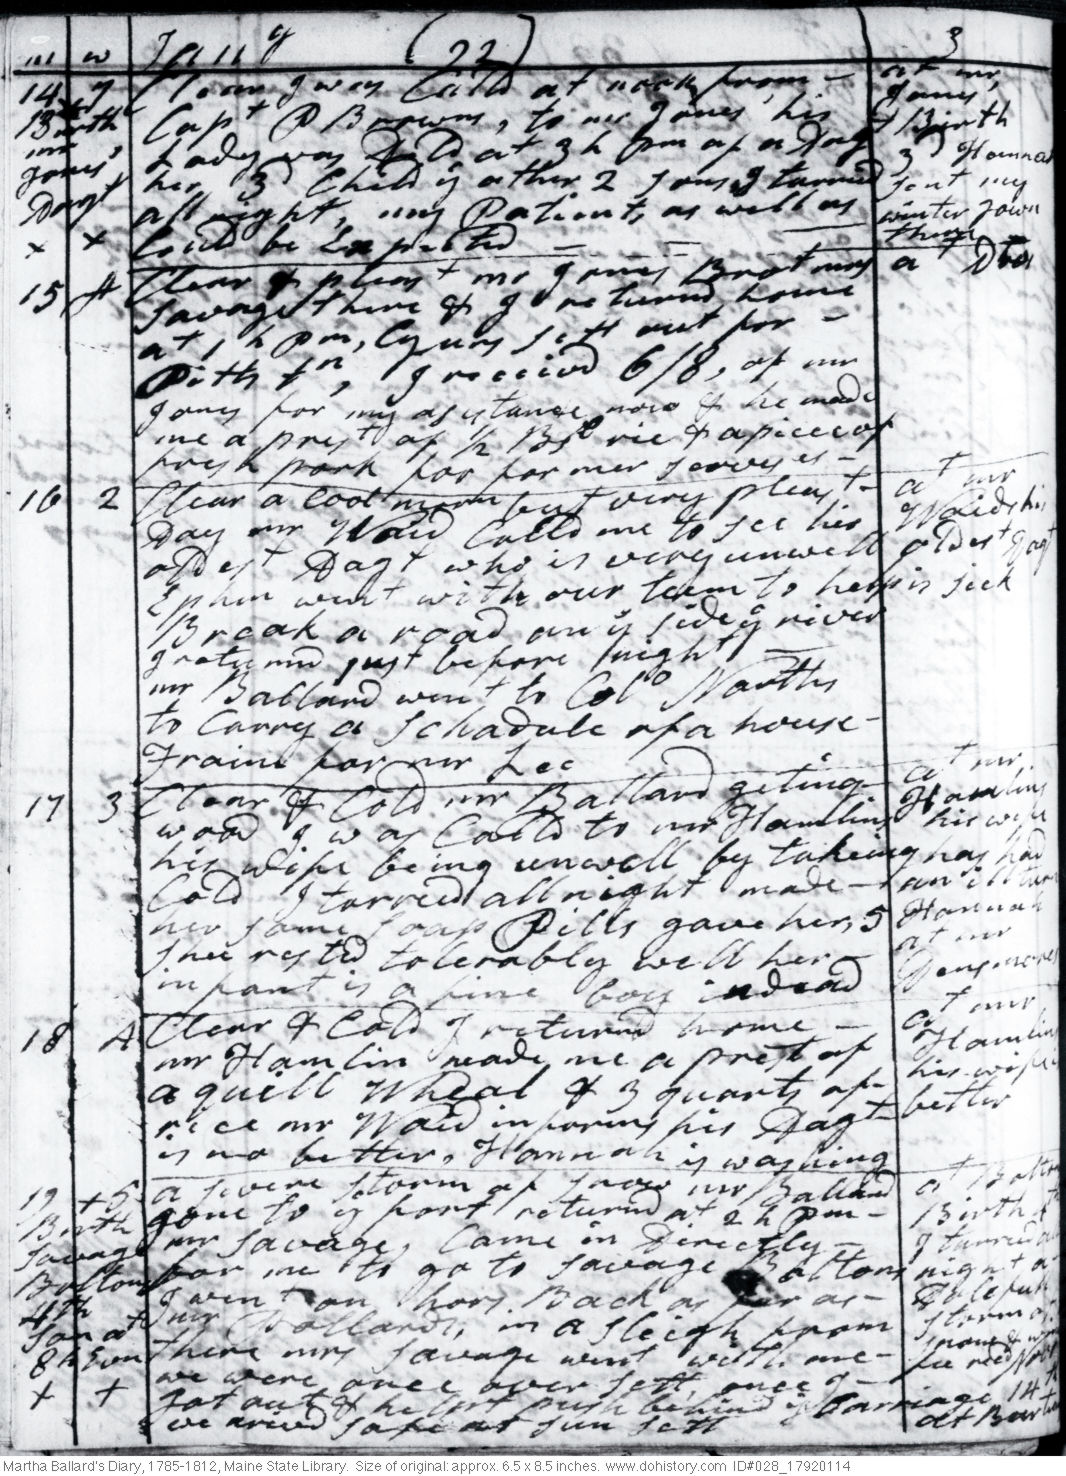 m w Jany (22) 3
14 7 Clear I was Calld at noon from - at mr
13th Capt P Browns, to mr Jones, his Jones,
Birth Lady was Delld at 3 h pm of a Dagt Birth
mr Jones, her 3d Child ye other 2 sons, I tarried 3d Hannah
Dagt all night, my Patient, as well as sent my
x x Could be Expected winter Gown there
15 A Clear & pleast mr Jones Brot mrs at Ditto
Savage there & I returnd home
at 1 h pm, Cyrus sett out for -
Pittstn, I received 6/8, of mr
Jones for my asistance now & he made
me a prest of 1/2 Bsl rie & a piece of
fresh pork for former servises -
16 2 Clear a cool morn but very pleast at mr
Day mr Waid Calld me to see his Waids his
oldest Dagt who is very unwell oldest Dagt
Ephm went with our team to help is sick
Break a road on ye side ye river
I returnd just before night
mr Ballard went to Colo Norths
to Carry a Schadule of a house
Fraim for mr Lee
17 3 Clear & Cold mr Ballard geting at mr Hamlins
wood I was Calld to mr Hamlins his wife
his wife being unwell by takeing has had
Cold I tarried all night made - an ill turn
her some soap Pills gave her, 5 Hannah
shee rested tolerably well her - at mr Densmores
infant is a fine boy indead
18 4 Clear & Cold I returnd home - at mr
mr Hamlin made me a prest of Hamlins
a quill Wheal & 3 quarts of his wife
rice mr Waid informs his Dagt better
is no better, Hannah is washing
19 + 5 a severe storm of snow mr Ballard at Boltons
Birth gone to ye fort returnd at 2 h pm - Birth
Savage mr Savage, Came in Directly - I tarried all
Boltons for me to go to Savage Boltons night a
4th I went on hors Back as far as -
son at mr Pollards, in a sleigh from storm of
8 h Evn there mrs Savage went with me - snow
x x we were once over sett, once I receed
got out & helpt push behind ye Carriage 14th
we arived safe at sun sett at
Martha Ballard's Diary, 1785-1812, Maine State Library. Size of original: approx. 6.5 x 8.5 inches. www.dohistory.com ID#028_17920114